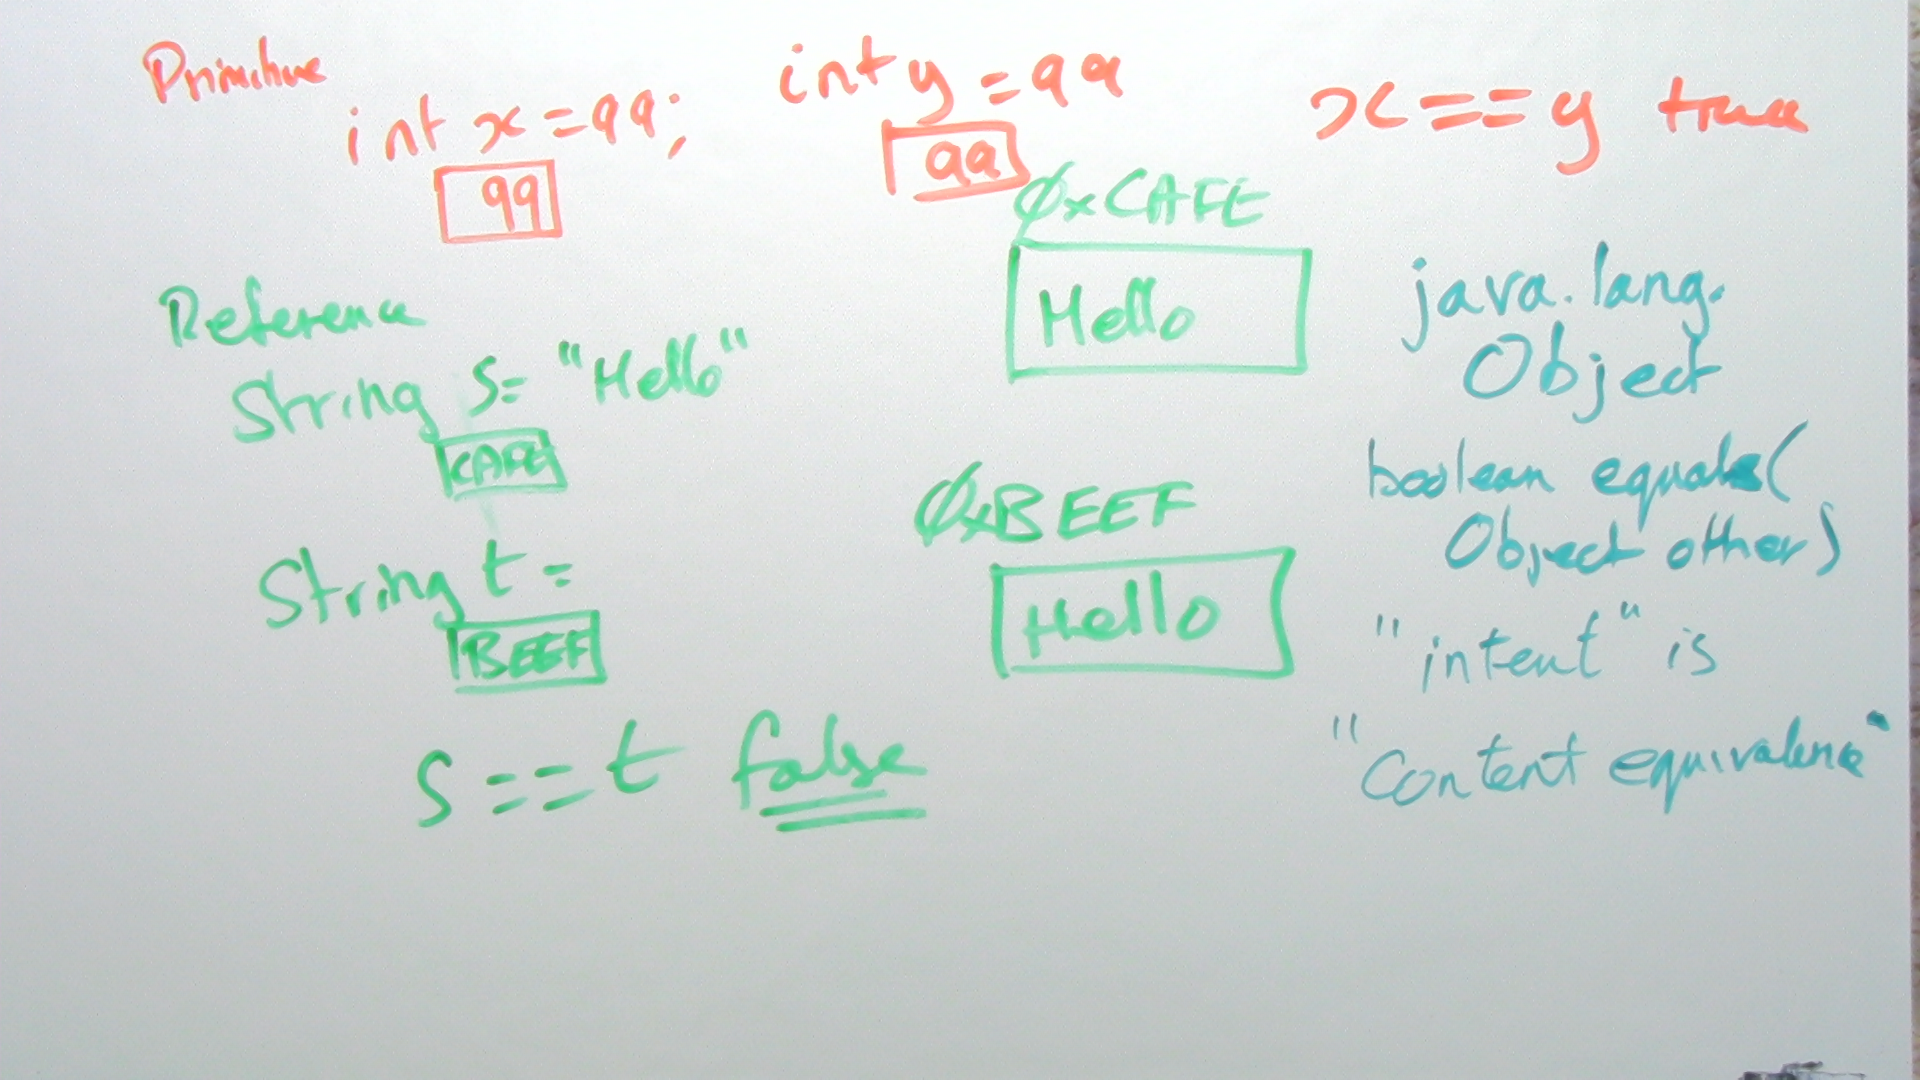 Primitive
int x = 99;
99
int y = 99
99
x == y true
Reference
String s = "Hello"
CAFE
0xCAFE
Hello
String t =
BEEF
0xBEEF
Hello
s == t false
java.lang.
Object
boolean equals(
Object other)
"intent" is
"Content equivalence"